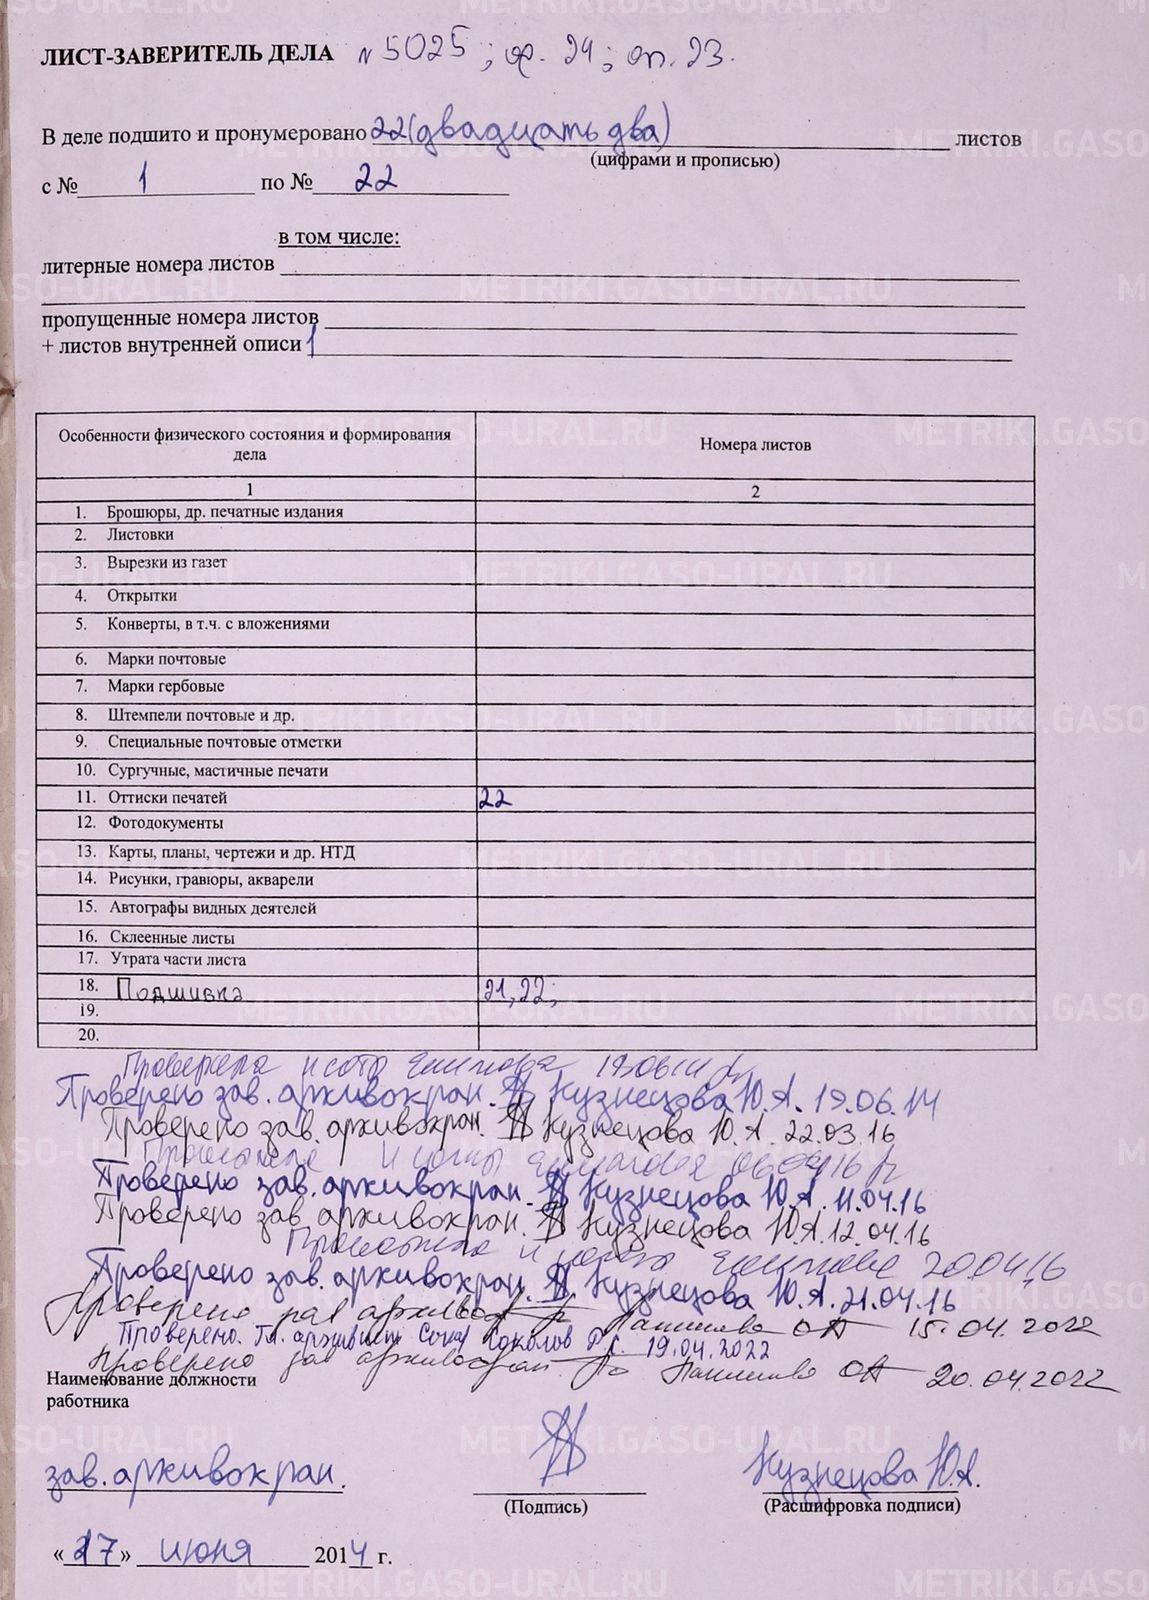 ЛИСТ-ЗАВЕРИТЕЛЬ ДЕЛА № 5025; ф. 24; оп. 23.
В деле подшито и пронумеровано 22 (двадцать два) листов
(цифрами и прописью)
с № 1 по № 22
в том числе:
литерные номера листов
пропущенные номера листов
+ листов внутренней описи 1
Особенности физического состояния и формирования дела Номера листов
1 2
1. Брошюры, др. печатные издания
2. Листовки
3. Вырезки из газет
4. Открытки
5. Конверты, в т.ч. с вложениями
6. Марки почтовые
7. Марки гербовые
8. Штемпели почтовые и др.
9. Специальные почтовые отметки
10. Сургучные, мастичные печати
11. Оттиски печатей 22
12. Фотодокументы
13. Карты, планы, чертежи и др. НТД
14. Рисунки, гравюры, акварели
15. Автографы видных деятелей
16. Склеенные листы
17. Утрата части листа
18. Подшивка 21, 22;
19.
20.
Проверена
Проверено зав. архивохран. Кузнецова Ю.А. 19.06.14
Проверено зав. архивохран. Кузнецова Ю.А. 22.03.16
Проверено зав. архивохран. Кузнецова Ю.А. 11.04.16
Проверено зав. архивохран. Кузнецова Ю.А. 12.04.16
20.04.16
Проверено зав. архивохран. Кузнецова Ю.А. 21.04.16
Проверено зав архивохр 15.04.2022
Проверено. Гл. архивист Соколов Р.С. 19.04.2022
Проверено зав архивохран 20.04.2022
Наименование должности
работника
зав. архивохран. Кузнецова Ю.А.
(Подпись) (Расшифровка подписи)
«17» июня 2014 г.
METRIKI.GASO-URAL.RU